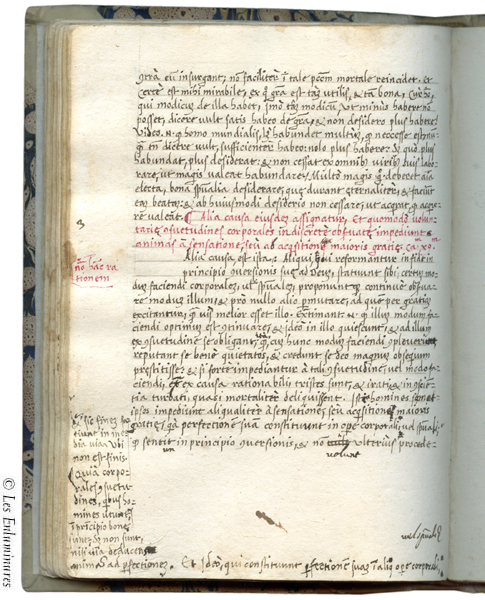 contra eu insurgant, no faciliter i tale pctm mortale reincidet. et
certe est mihi mirabile, ex q gra est tam utilis, & tam bona, cur ho,
qui modicu de illa habet, imo tam modicu vt minus habere no
posset, dicere vult satis habeo de gra, & non desidero plus habere
Video .n. q homo mundialis, si habundet multum, q necesse est
q tn dicere vult, sufficienter habeo: nolo plus habere: & quo plus
habundat, plus desiderat: & non cessat ex omnib virib suis labo-
rare, ut magis valeat habundare. Multo magis q deberet aia
electa, bona spualia desiderare, que durant eternaliter, & faciunt
eam beatam: & ab huiusmodi desiderio non cessare, ut acqrat, q acqre
re valeat. Alia causa eiusdem assignatur, et quomodo volun
tarie consuetudines corporales indiscrete obseruate impediunt
animas a sensatione, seu ab acqstione maioris gratie. Ca. m
Alia causa, est ista. Aliqui reformantur in
principio conuersionis sue ad Deum, statuunt sibi certum mo
dum faciendi corporales, uel spuales, proponunt continuo obserua
re modum illum, & pro nullo alio pmutare, ad quem per gratiam
excitantur, quis melior esset illo. Existimant q illum modum fa
ciendi optimum est continuare, & ideo in illo quiescunt, & ad illum
ex consuetudine se obligant, cum hunc modum faciendi
reputant se bene quietatos, & credunt se deo magnum obsequium
prestitisse: & si forte impediantur a tali consuetudine, uel modo fa
ciendi, ex causa rationabili tristes sunt, & irati, & in
tia turbati, quasi mortaliter deliquissent. Iste homines semet
ipsos impediunt aliqualiter a sensatione, seu acqstione maioris
gratie, qa perfectionem suam constituunt in opere corporali, ul spuali,
q sentiunt in principio conuersionis, & no ulterius procede-
volunt
3
no hac ra
tionem
& sic finem
tiunt in me
dia via, vbi
non est finis.
Quia corpo-
rales consuetu
dines, quibus ho-
mines utuntur,
i principio bone
sunt, & non sunt,
nisi
anima ad perfectionem. Et Ideo, qui constituunt perfectionem suam i alio opere corporali,
uel spuali
© Les Enluminures